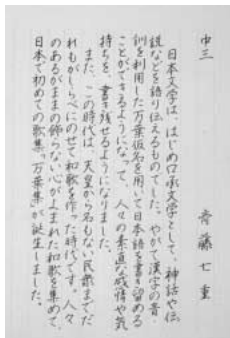 中三　斉藤七重
日本文学は、はじめ口承文学として、神話や伝
説などを語り伝えるものでした。やがて漢字の音・
訓を利用した万葉仮名を用いて日本語を書き留める
ことができるようになって、人々の素直な感情や気
持ちを、書き残せるようになりました。
また、この時代は、天皇から名もない民衆までだ
れもがしらべにのせて和歌を作った時代です。人々
のあるがままの飾らない心がよまれた和歌を集めて、
日本で初めての歌集「万葉集」が誕生しました。